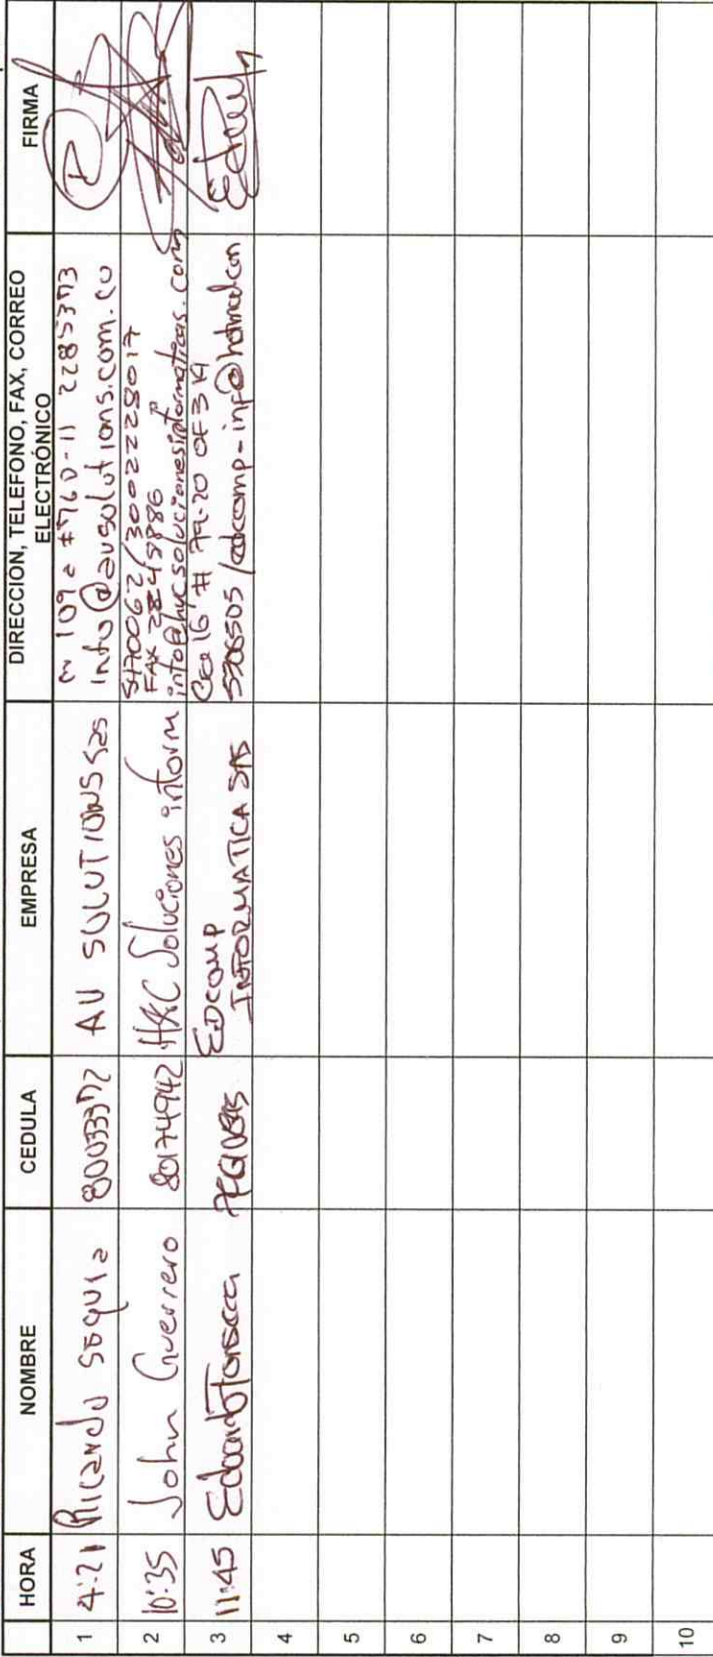 HORA NOMBRE CEDULA EMPRESA DIRECCIÓN, TELEFONO, FAX, CORREO
ELECTRÓNICO FIRMA
1 4:21 Ricardo 80033372 AV SOLUTIONS sas
109a #76D-11 2285373
info@avsolutions.com.co
2 10:35 John Guerrero 80174942 H&C Soluciones inform
5470062/3002228017
FAX
info@hycsolucionesinformaticas.com
3 11:45 Eduardo Fonseca EDCOMP
INFORMATICA SAS
16 # 79-20 OF 319
5306505 / edcomp-inf@hotmail.com
4
5
6
7
8
9
10